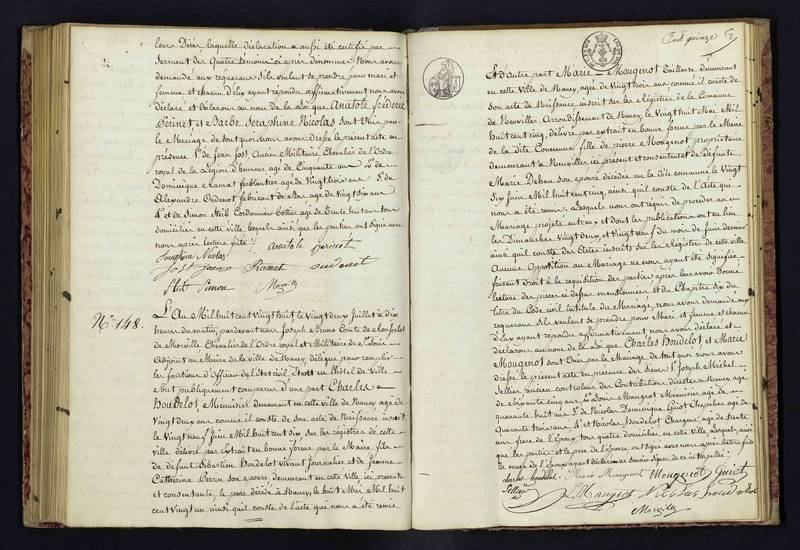 leurs Décès, laquelle déclaration a aussi été certifiée par
serment des quatre témoins ci après dénommés. Nous avons
demandé aux requérans s'ils veulent se prendre pour mari et
femme et chacun d'eux ayant répondu affirmativement nous avons
déclaré et déclarons au nom de la Loi que Anatole frédéric
Perinet et Barbe Seraphine Nicolas sont unis par
le Mariage de tout quoi nous avons dressé le présent acte en
présence de Jean Jost, Ancien Militaire Chevalier de l'Ordre
royal de la Légion d'honneur agé de Cinquante ans
Dominique ferblantier agé de Vingt trois ans
Alexandre Oudenot, fabricant de Bas agé de Vingt six ans
et de Simon Cordonnier Bottier agé de Trente huit ans tous
domiciliés en cette ville lesquels ainsi que les parties ont signé avec
nous après lecture faite
Seraphine Nicolas anatole perinet
Jost jean oudenot
Simon Morville
N.° 148.
L'An Mil huit cent vingt huit le vingt deux Juillet à dix
heures du matin, pardevant nous Joseph Bruno Comte de
de Morville Chevalier de l'Ordre royal et Militaire de St Louis
Adjoint au Maire de la ville de Nancy, délégué pour remplir
les fonctions d'Officier de l'état Civil en l'hôtel de Ville
sont publiquement comparus d'une part Charles
Houdelot, Menuisier demeurant en cette ville de Nancy agé de
Vingt deux ans comme il conste de son acte de Naissance inscrit
le Vingt neuf Juin Mil huit cent six sur les régistres de cette
ville, délivré par extrait en bonne forme par le Maire, fils
de défunt Sébastien Houdelot vivant Journalier et de Jeanne
Catherine Perrin son épouse demeurant en cette ville ici présente
et consentante, le père décédé à Nancy, le huit Mai Mil huit
cent Vingt un ainsi qu'il conste de l'acte que nous a été remis
Cent quinze
Et d'autre part Marie Mougenot Tailleuse demeurant
en cette ville de Nancy, agée de Vingt trois ans comme il conste de
son acte de Naissance inscrit sur les Régistres de la Commune
de Neuviller Arrondissement de Nancy, le Vingt huit Mai Mil
huit cent cinq, délivré par extrait en bonne forme par le Maire
de la dite Commune fille de pierre Mougenot propriétaire
demeurant à Neuviller ici présent et consentant et de défunte
Marie Dehan son épouse décédée en la dite commune le Vingt
six Juin Mil huit cent cinq, ainsi qu'il conste de l'acte que
nous a été remis. Lesquels nous ont requis de procéder au
Mariage projeté entr'eux et dont les publications ont eu lieu
les Dimanches Vingt deux, et Vingt neuf du mois de Juin dernier
ainsi qu'il conste des actes inscrits sur les Régistres de cette ville
Aucune Opposition au Mariage ne nous ayant été signifiée
faisant droit à la requisition des parties après leur avoir donné
lecture des pièces ci dessus mentionnées et du Chapitre six du
titre du Code civil intitulé du Mariage, nous avons demandé aux
requérans s'ils veulent se prendre pour Mari et femme et chacun
d'eux ayant répondu affirmativement nous avons déclaré et
déclarons au nom de la Loi que Charles Houdelot et Marie
Mougenot sont Unis par le Mariage de tout quoi nous avons
dressé le présent acte en présence des Sieurs Joseph Michel
Sellier, ancien controleur des Contributions directes à Nancy, agé
de soixante cinq ans Louis Mougenot Menuisier agé de
quarante huit ans Nicolas Dominique Guiot Chapelier agé de
Quarante trois ans et Nicolas Houdelot agé de trente
ans frère de l'Epoux, tous quatre domiciliés en cette Ville Lesquels ainsi
que les parties et le père de l'Epouse, ont signé avec nous après lecture faite
la mère de l'Epoux ayant déclaré ne savoir signer de ce interpellée
charles houdelot Marie Mougenot Mougenot Guiot
Sellier Mougenot Nicolas houdelot
Morville